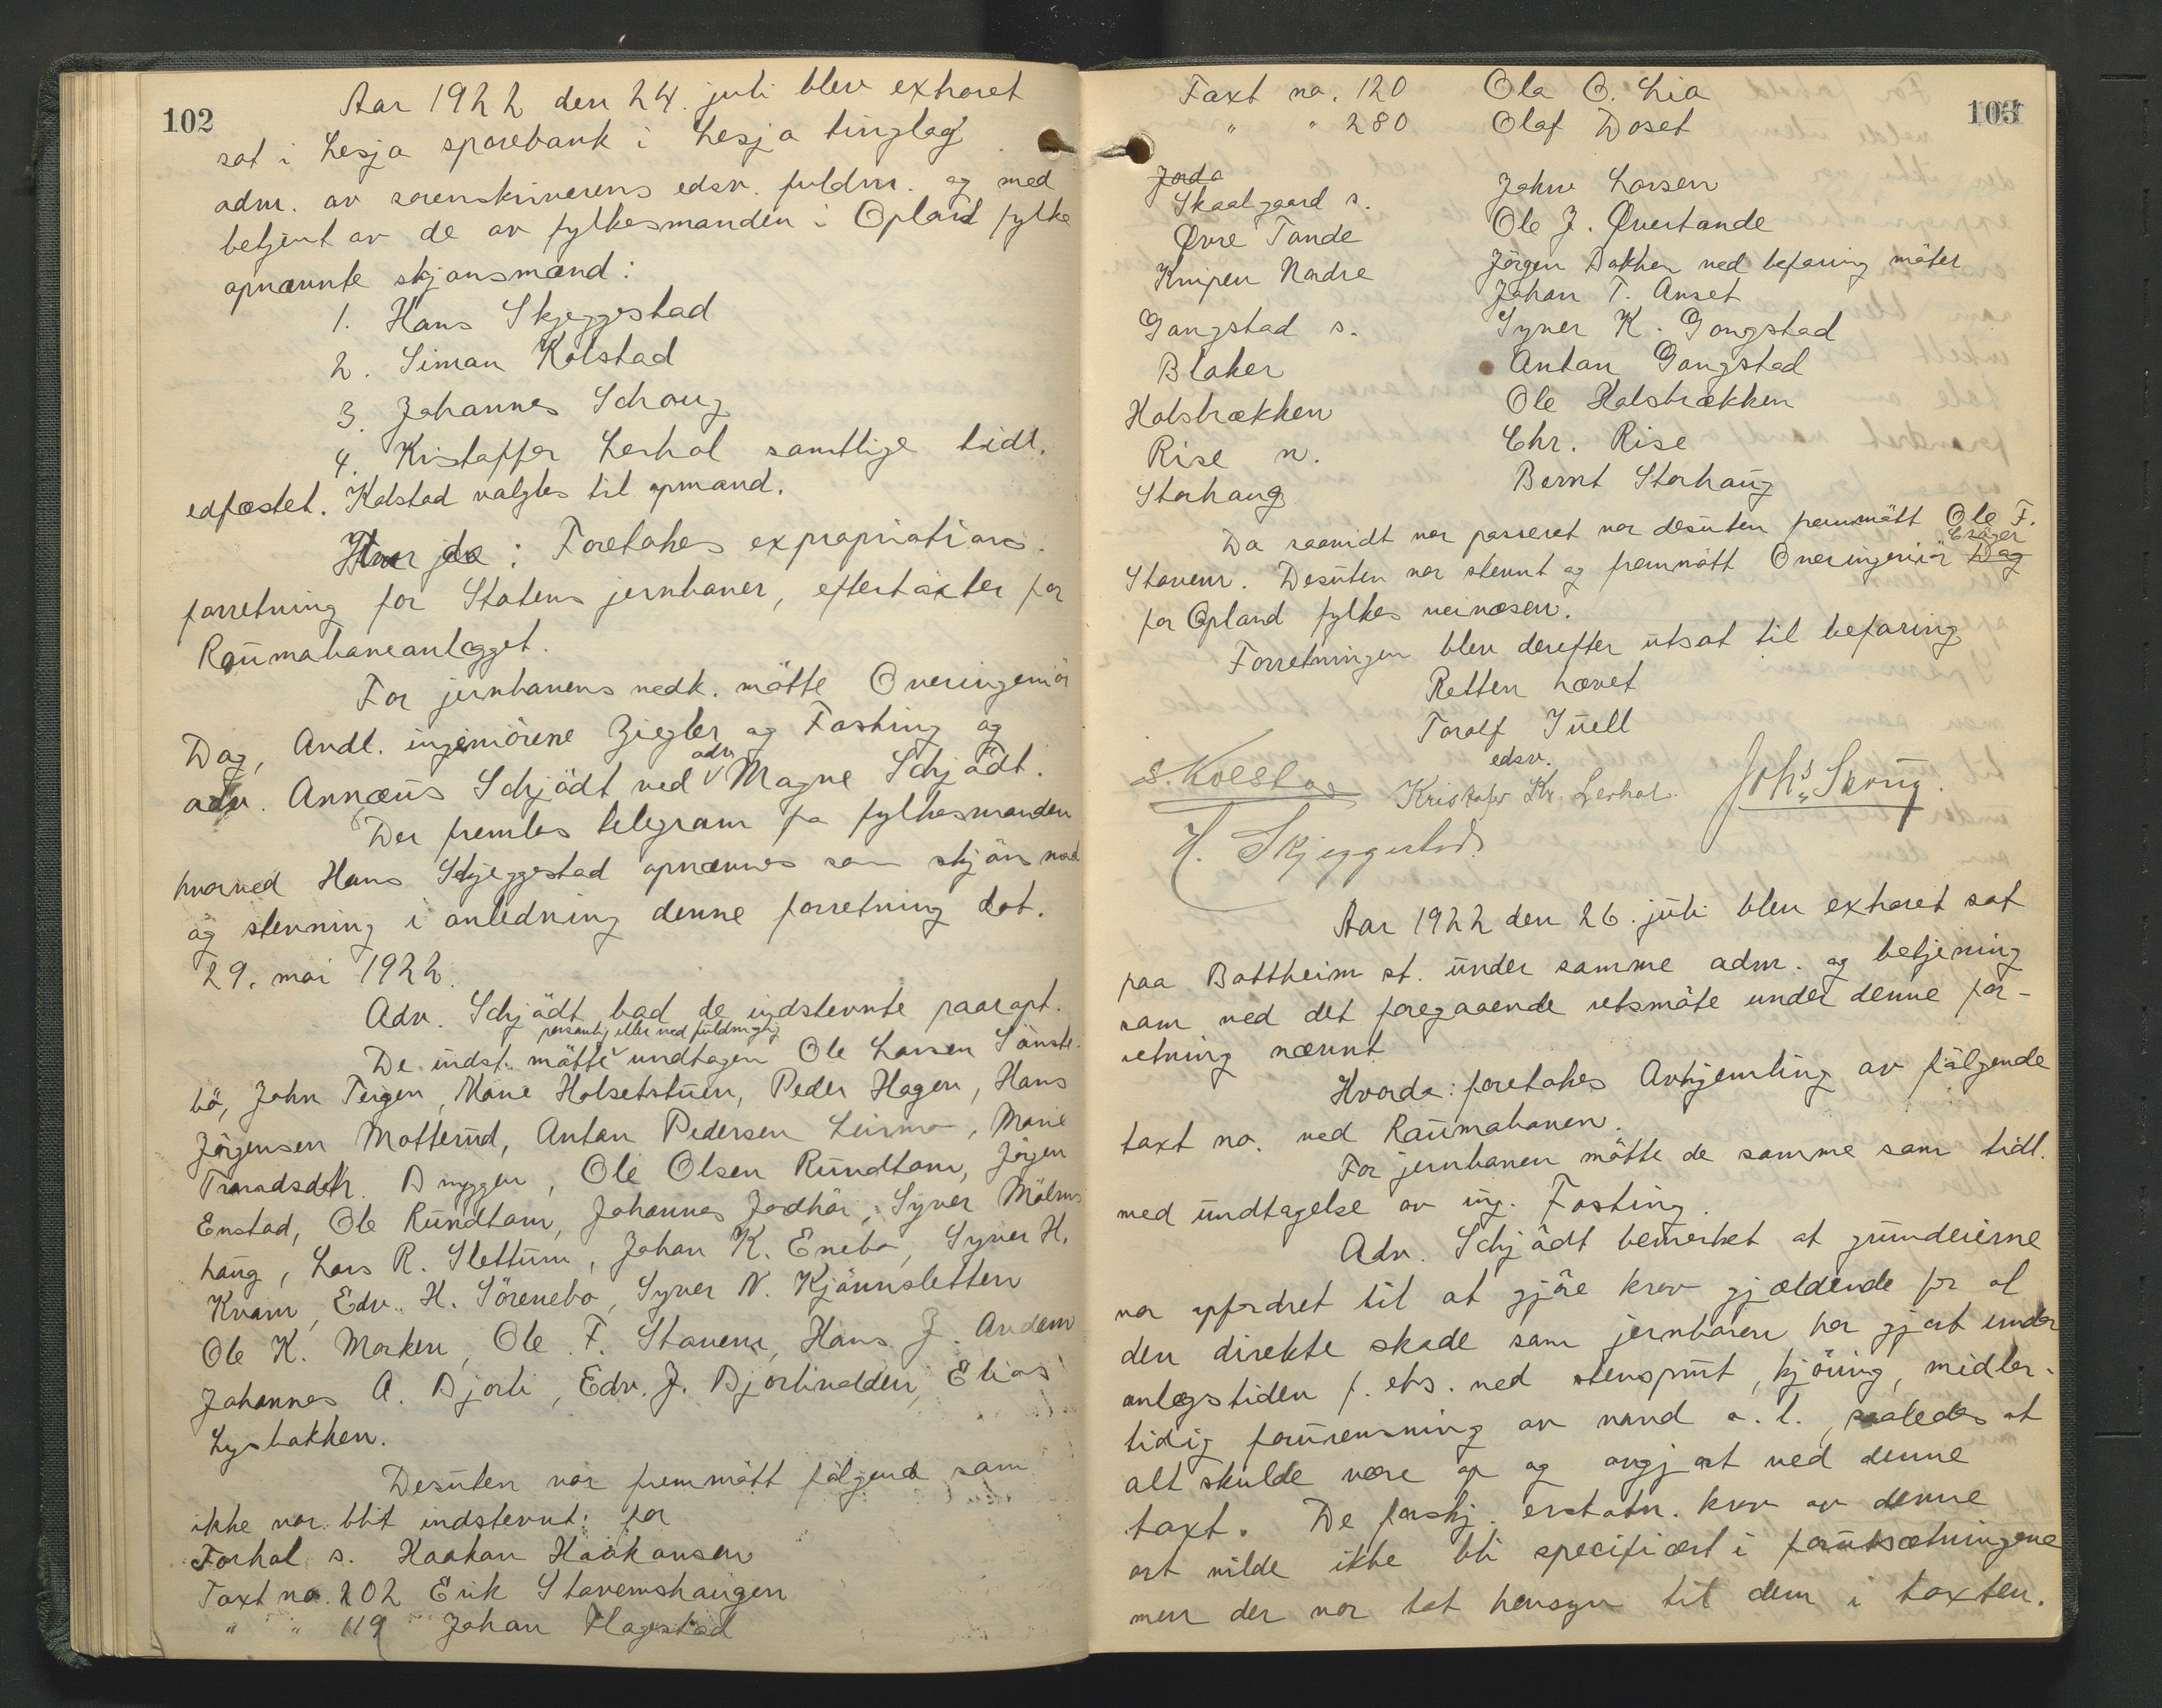 102
Aar 1922 den 24. juli blev extraret
sat i Lesja sparebank i Lesja tinglag
adm. av sorenskriverens edsv. fuldm. og med
betjent av de av fylkesmanden i Opland fylke
opnævnte skjønsmænd:
1. Hans Skjeggestad
2. Simon Kolstad
3. Johannes Schoug
4. Kristoffer Lerhol samtlige tidl.
edfæstet. Kolstad valgtes til opmand.
Hvor da: Foretokes expropriations-
forretning for Statens jernbaner, eftertaxter for
Raumabaneanlegget.
For jernbanens vedk. mötte Overingeniör
Dag, Avdl. ingeniörene Ziegler og Fasting og
adv. Annæus Schjödt ved adv. Magne Schjödt.
Der fremlas telegram fra fylkesmanden
hvorved Hans Skjeggestad opnævnes som skjönsmand
og stevning i anledning denne forretning dat.
29. mai 1922.
Adv. Schjödt bad de indstevnte paaropt.
personlig eller ved fuldmægtig
De indst. mötte undtagen Ole Larsen Sönste-
bö, John Teigen, Marie Holsetstuen, Peder Hagen, Hans
Jörgensen Motterud, Anton Pedersen Leirmo, Marie
Tronsdsdtr. Bryggen, Ole Olsen Rundtom, Jörgen
Enstad, Ole Rundtom, Johannes Jordhöi, Syver Mölms-
haug, Lars R. Slettum, Johan K. Enebo, Syver H.
Kvam, Edv. H. Sörenebo, Syver N. Kjönnsletten
Ole K. Marken, Ole F. Stavem, Hans J. Andem
Johannes A. Bjorli, Edv. J. Bjorlivolden, Elias
Lysbakken.
Desuten var fremmött fölgende som
ikke var blit indstevnt: for
Forhol s. Haakon Haakonsen
Taxt no. 202 Erik Stavemshaugen
" " 119 Johan Flagestad
103
Taxt no. 120 Ola O. Lia
" " 280 Olaf Doset
Jorda
Skaalgaard s. Johne Larsen
Øvre Tande Ole J. Øvertande
Knipen Nordre Jörgen Bakken ved befaring möter
Johan T. Anset
Gangstad s. Syver K. Gongstad
Blaker Anton Gangstad
Holsbrækken Ole Holsbrækken
Rise n. Chr. Rise
Storhaug Bernt Storhaug
Da saavidt var passeret var desuten fremmött Ole F.
Stavem. Desuten var stevnt og fremmött Overingeniör Dag
for Opland fylkes veivæsen.
Forretningen blev derefter utsat til befaring
Retten hævet
Toralf Juell
edsv.
S. Kolstad Kristofer Kr. Lerhol. Johs. Skoug.
H. Skjeggestad.
Aar 1922 den 26. juli blev extraret sat
paa Bottheim st. under samme adm. og betjening
som ved det foregaaende retsmöte under denne for-
retning nævnt
Hvorda: foretokes Avhjemling av fölgende
taxt no. ved Raumabanen.
For jernbanen mötte de samme som tidl.
med undtagelse av ing. Fasting.
Adv. Schjödt bemerket at grundeierne
var opfordret til at gjöre krav gjældende for al
den direkte skade som jernbanen har gjort under
anlægstiden f. eks. ved stensprut, kjöring, midler-
tidig forurensning av vand o. l., saaledes at
alt skulde være op og avgjort ved denne
taxt. De forskj. erstatn. krav av denne
art vilde ikke bli specificert i forutsætningene
men der var tat hensyn til dem i taxten.